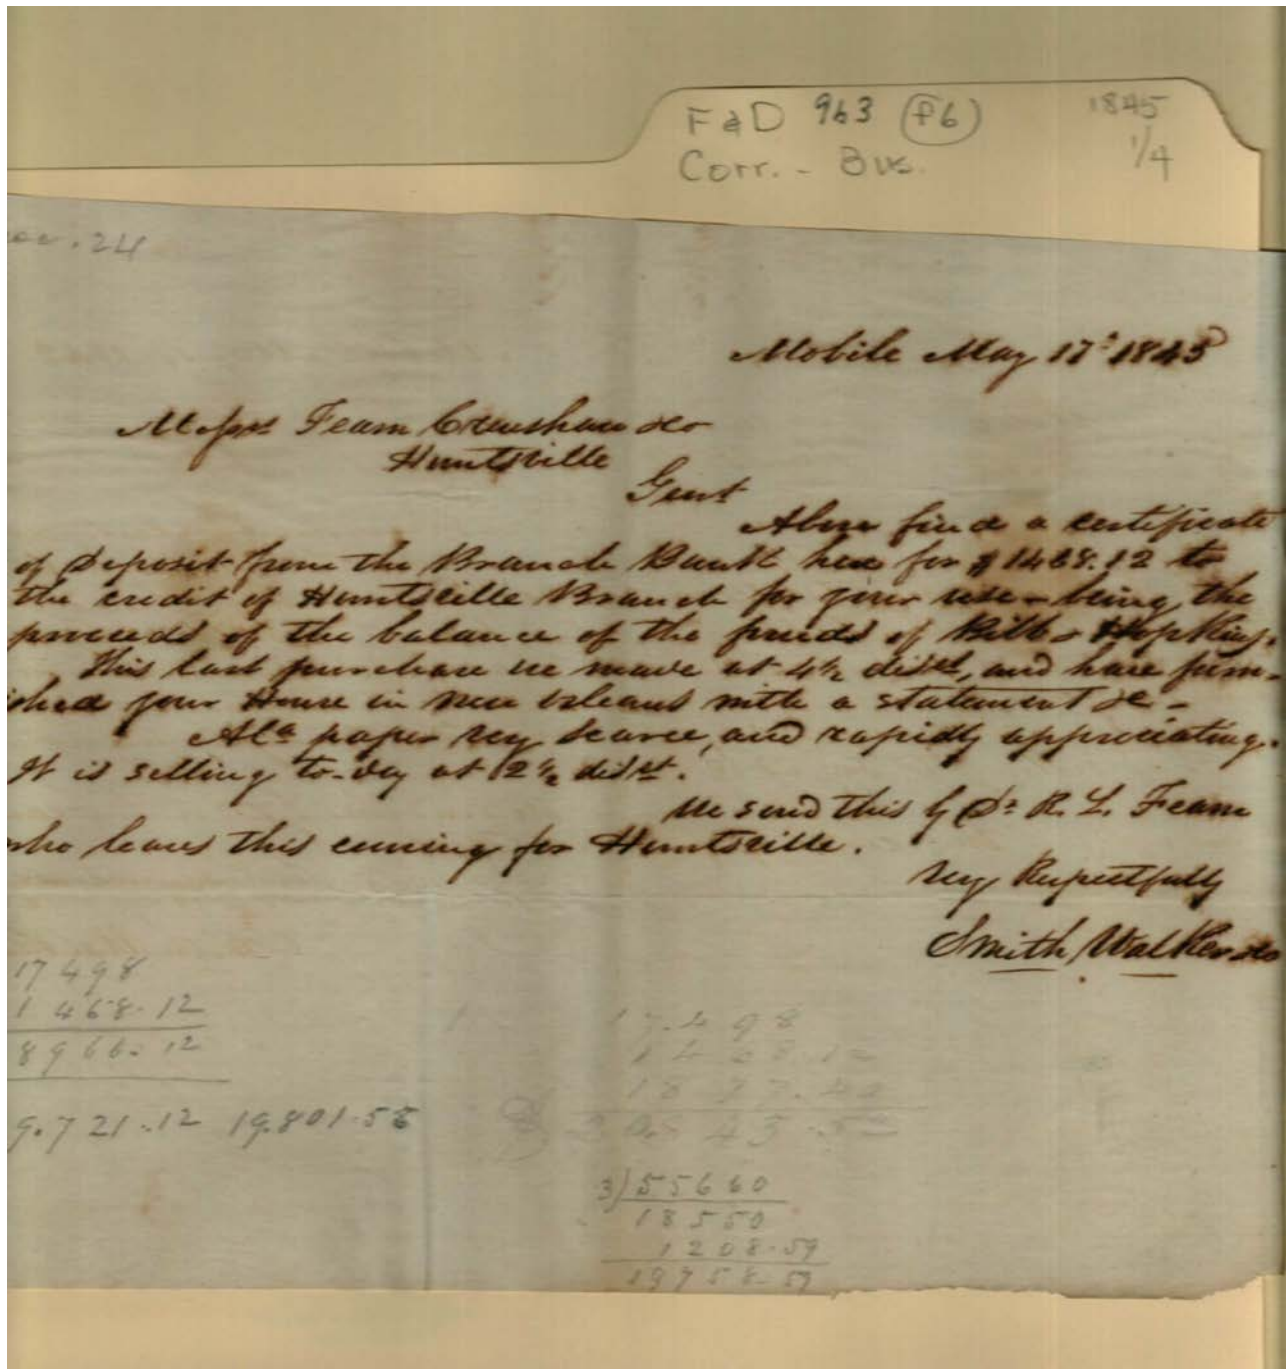 F&D 963 (P6) 1845
Corr. - Bus. 1/4
24
Mobile May 17th 1845
Messrs Fearn Crenshaw &Co
Huntsville
Gent
Above find a certificate
of Deposit from the Branch Bank here for $1468.12 to
the credit of Huntsville Branch for your use - being the
proceeds of the balance of the funds of Bibb & Hopkins.
This last purchase we made at 4½ disct, and have furn-
ished your House in New Orleans with a statement &c -
Ala paper very scarce, and rapidly appreciating.
It is selling to-day at 2½ disct.
We send this by Dr R. L. Fearn
who leaves this evening for Huntsville.
Very Respectfully
Smith, Walker &Co
17498
1 468.12
8966.12
9.721.12 19.801.55
17.498
1468.12
3)55660
18550
1208.59
19758.59